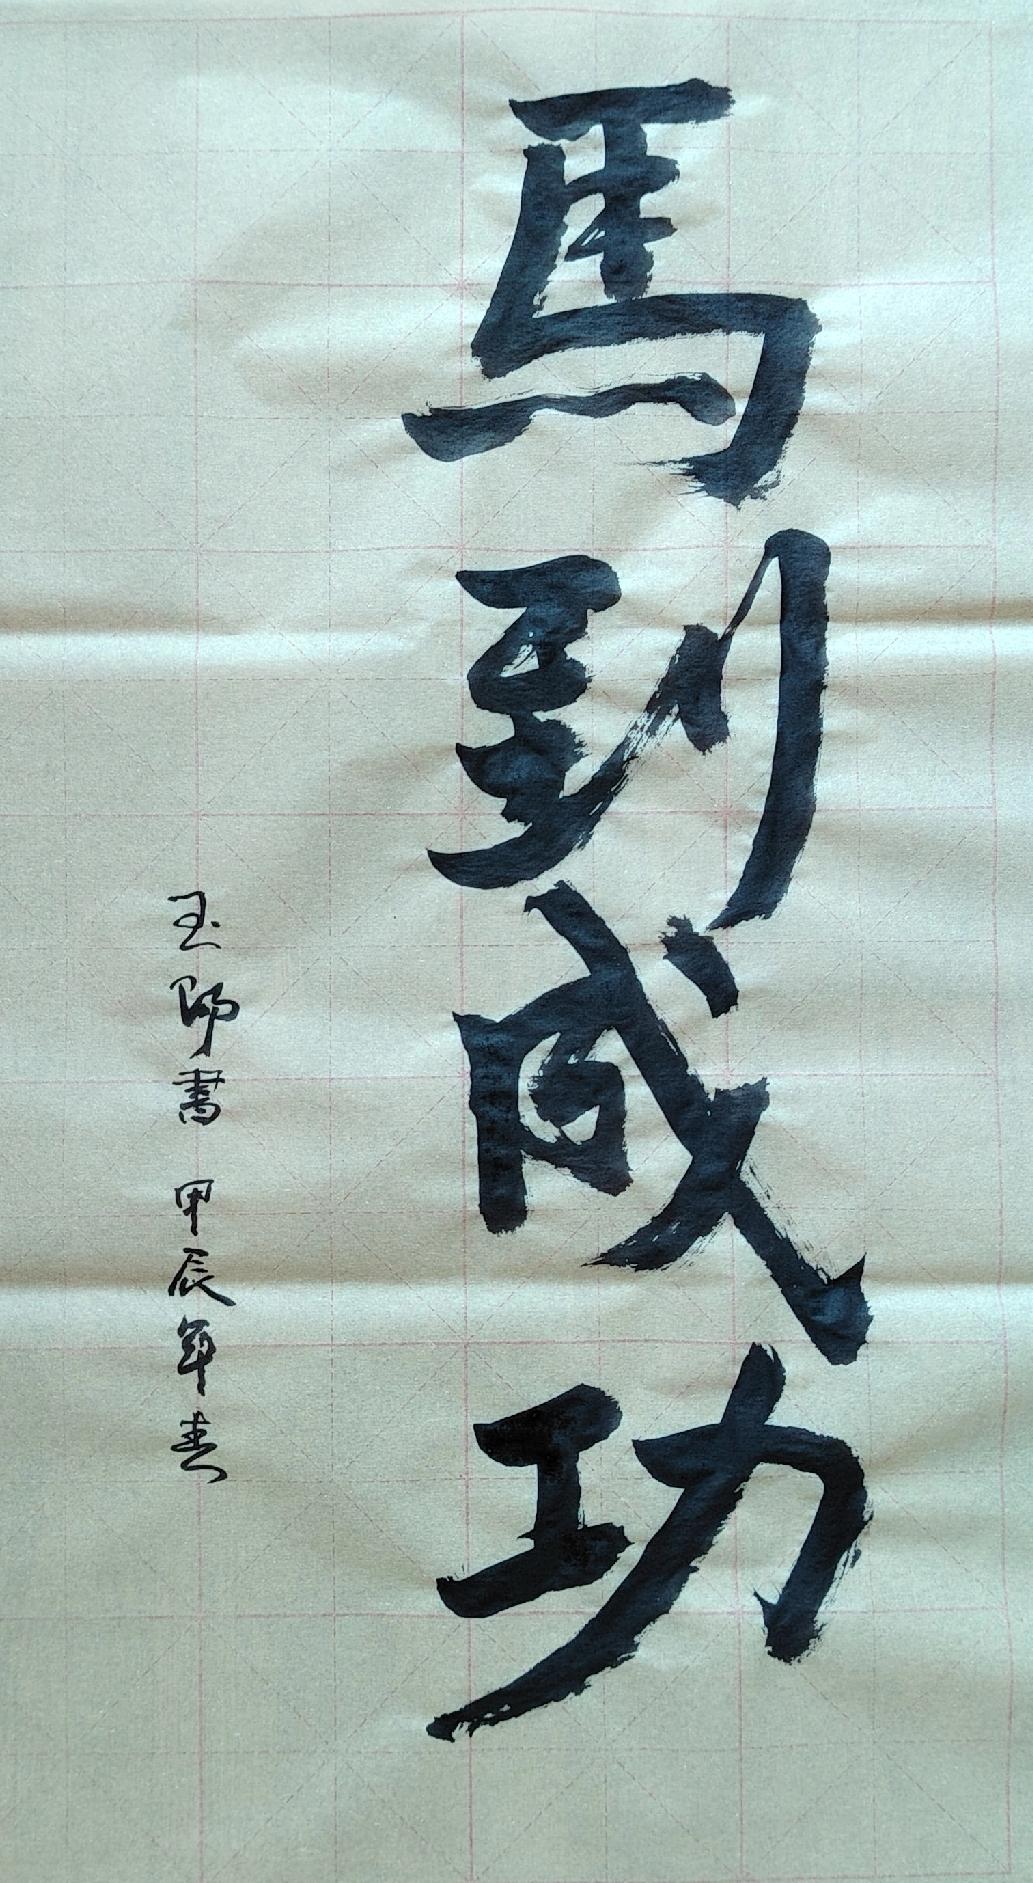 馬到成功
玉師書 甲辰年春